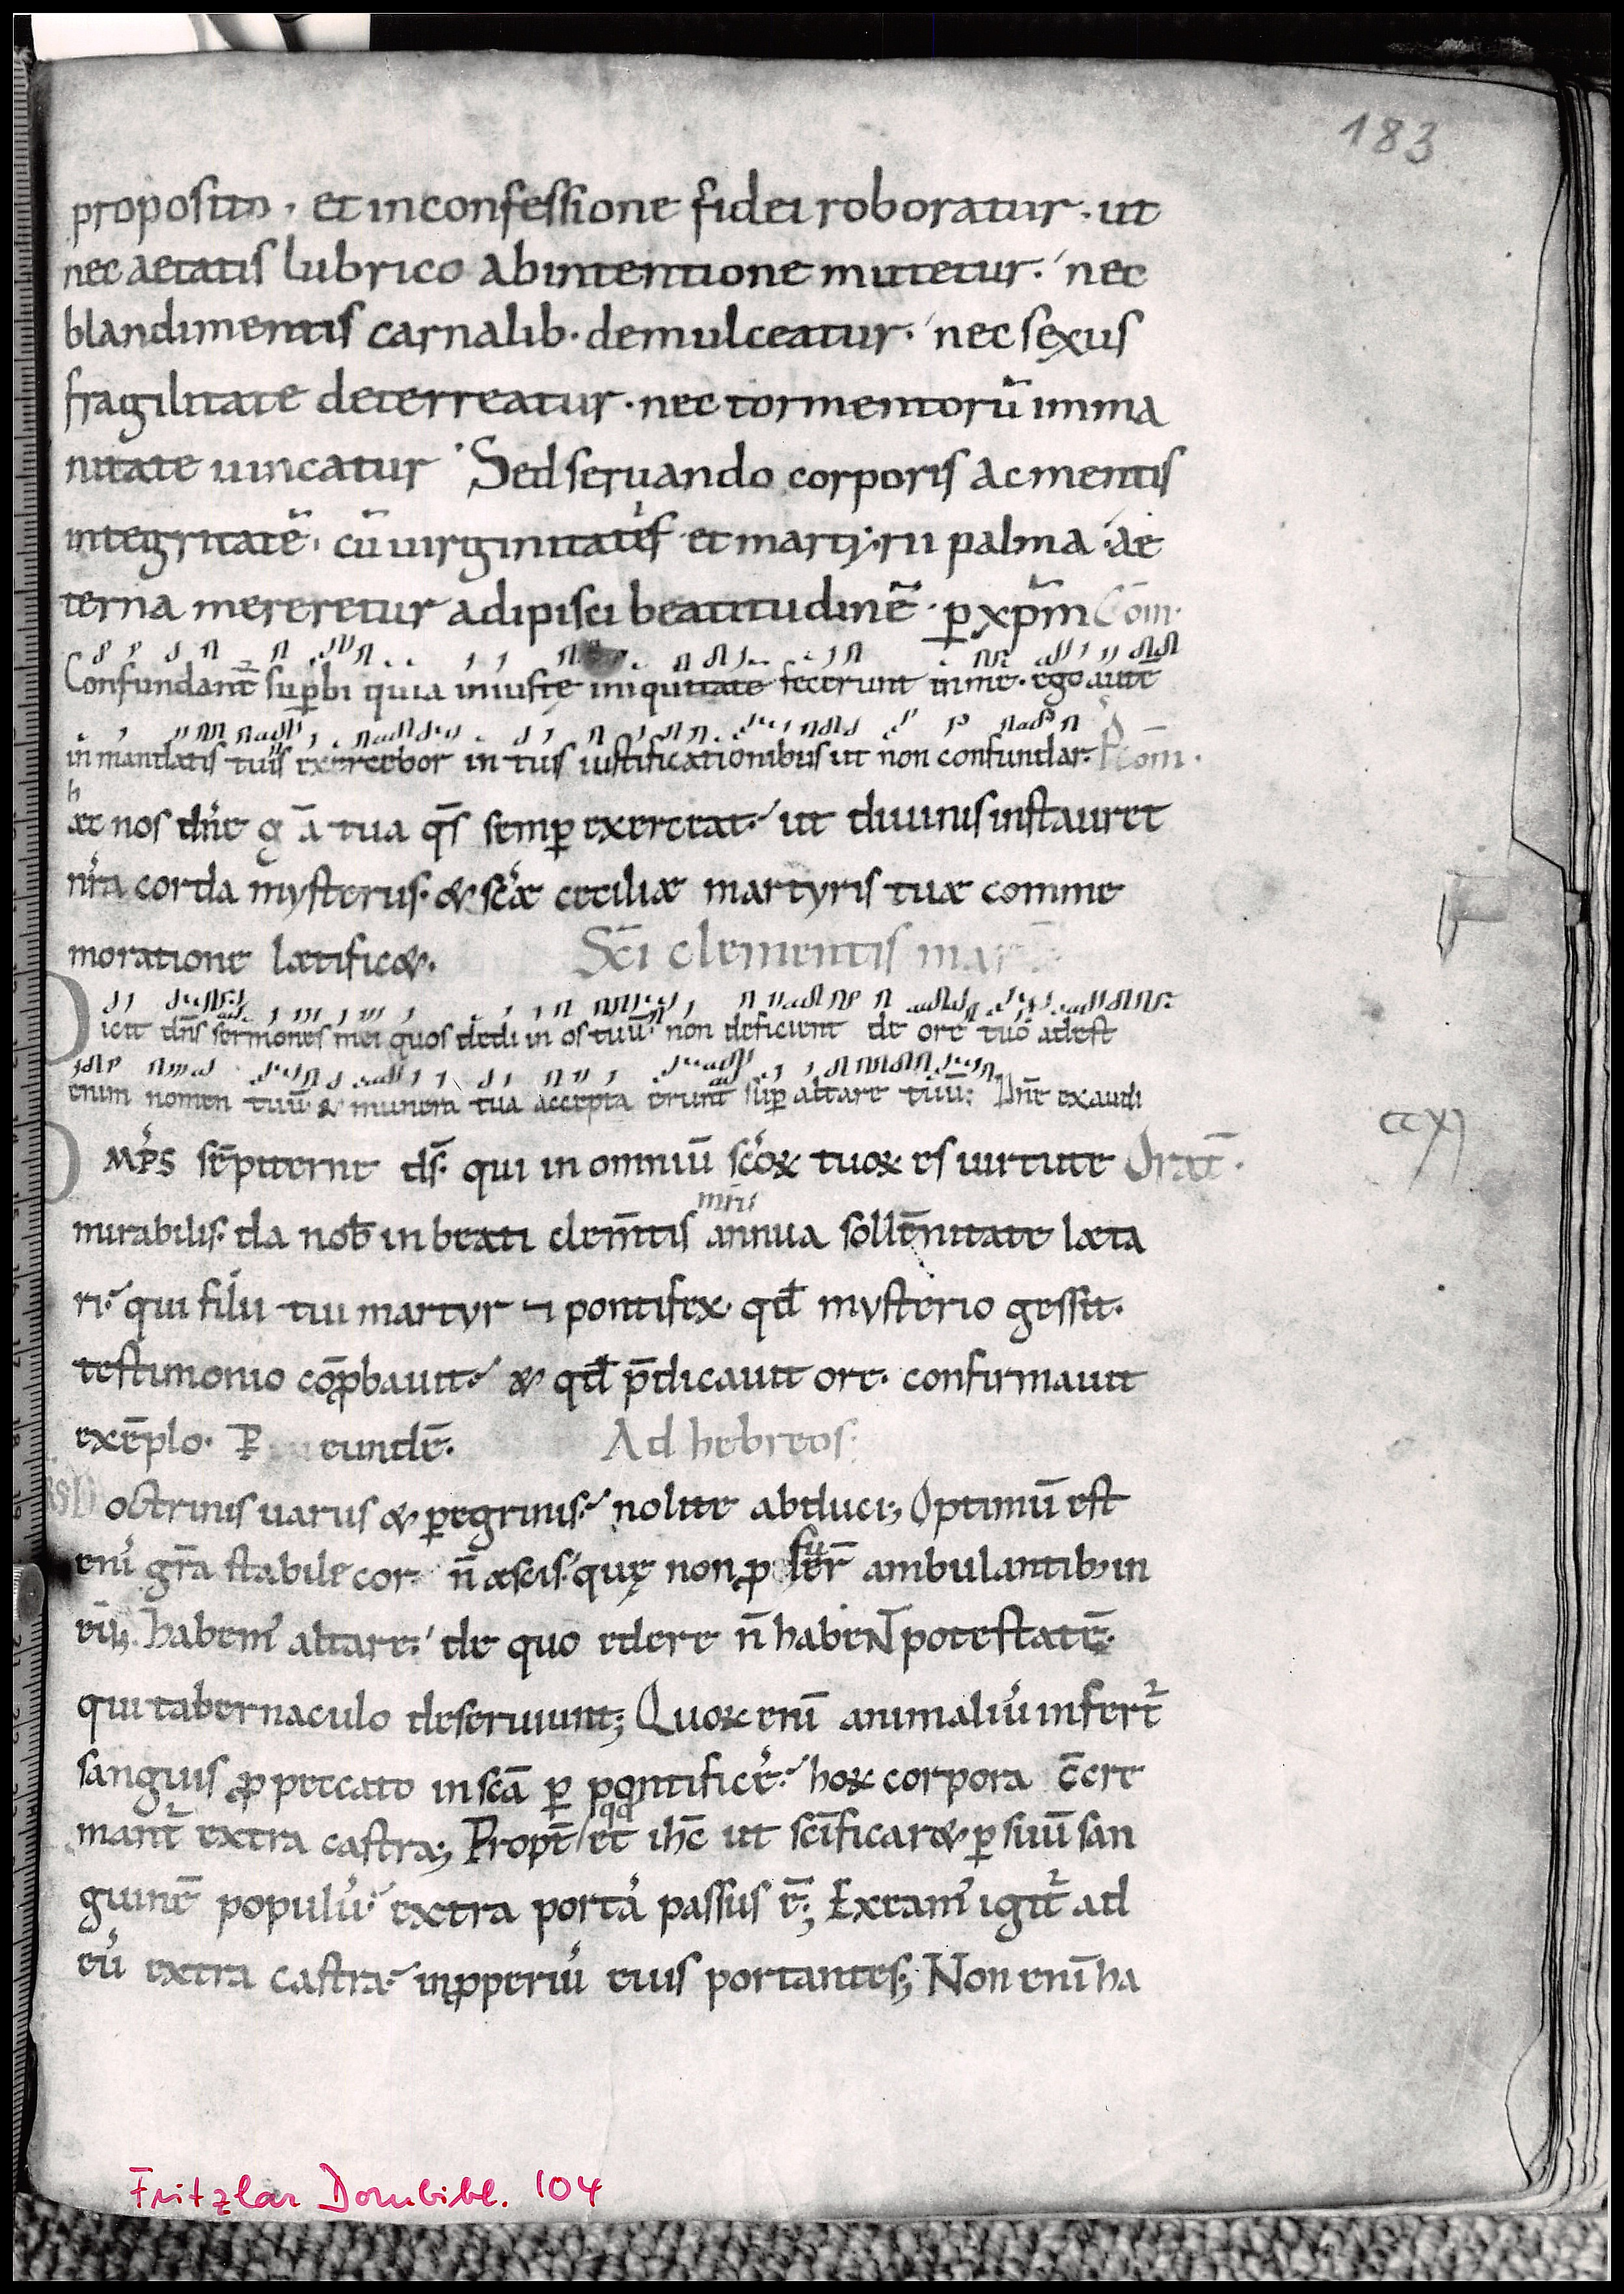 183
proposito, et inconfessione fidei roboratur, ut
nec aetatis lubrico abintentione mutetur. nec
blandimentis carnalib· demulceatur. nec sexus
fragilitate deterreatur. nec tormentorū imma
nitate uincatur Sed seruando corporis ac mentis
integritatē, cū uirginitatis et martyrii palma ae
terna mereretur adipisci beatitudinē. p̱ xp̄m Com̄
Confundant̄ sup̱bi quia iniustę iniquitatē fecerunt in me. ego autē
in mandatis tuis exercebor in tuis iustificationibus ut non confundar. P̱ com̄.
hæc nos dn̄e gr̄a tua qs̄ semp̱ exerceat. ut diuinis instauret
nr̄a corda mysteriis. & sc̄æ ceciliæ martyris tuæ comme
moratione lætific&. Sc̄i clementis mar
Dicit dn̄s sermones mei quos dedi in os tuū. non deficient de ore tuo adest
enim nomen tuū & munera tua accepta erunt sup̱ altare tuū: Dn̄e exaudi
ccxi
OMP̄S sēpiterne ds̄. qui in omniū sc̄oꝝ tuoꝝ es uirtute Orat̄.
mirabilis. da nob̄ in beati clem̄tis mr̄is annua sollēnitate læta
ri. qui filii tui martyr ⁊ pontifex. qd̄ mysterio gessit.
testimonio cōp̱bauit. & qd̄ p̄dicauit ore. confirmauit
exēplo. P̱ eundē. Ad hebreos.
Doctrinis uariis & p̱egrinis. nolite abduci; Optimū est
enī gr̄a stabile cor n̄ æscis. quę non ꝓfuer̄ ambulantib; in
eis. habem' altare. de quo edere n̄ habeNT̄ potestatē.
qui tabernaculo deseruiunt; Quoꝝ enī animaliū infert̄
sanguis ꝓ peccato in sc̄a p̱ pontificē. hoꝝ corpora c̄cre
mant̄ extra castra; Propt̄ qd et ih̄c ut sc̄ificar& p̱ suū san
guinē populū extra portā passus ē; Exeam' igit̄ ad
eū extra castra. inꝓperiū eius portantes; Non enī ha
Fritzlar Dombibl. 104